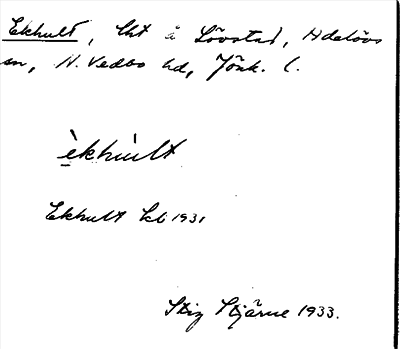 Ekhult, lht å Lövstad, Adelövs
sn, N. Vedbo hd, Jönk. l.
èkhùlt
Ekhult kb 1931
Stig Stjärne 1933.